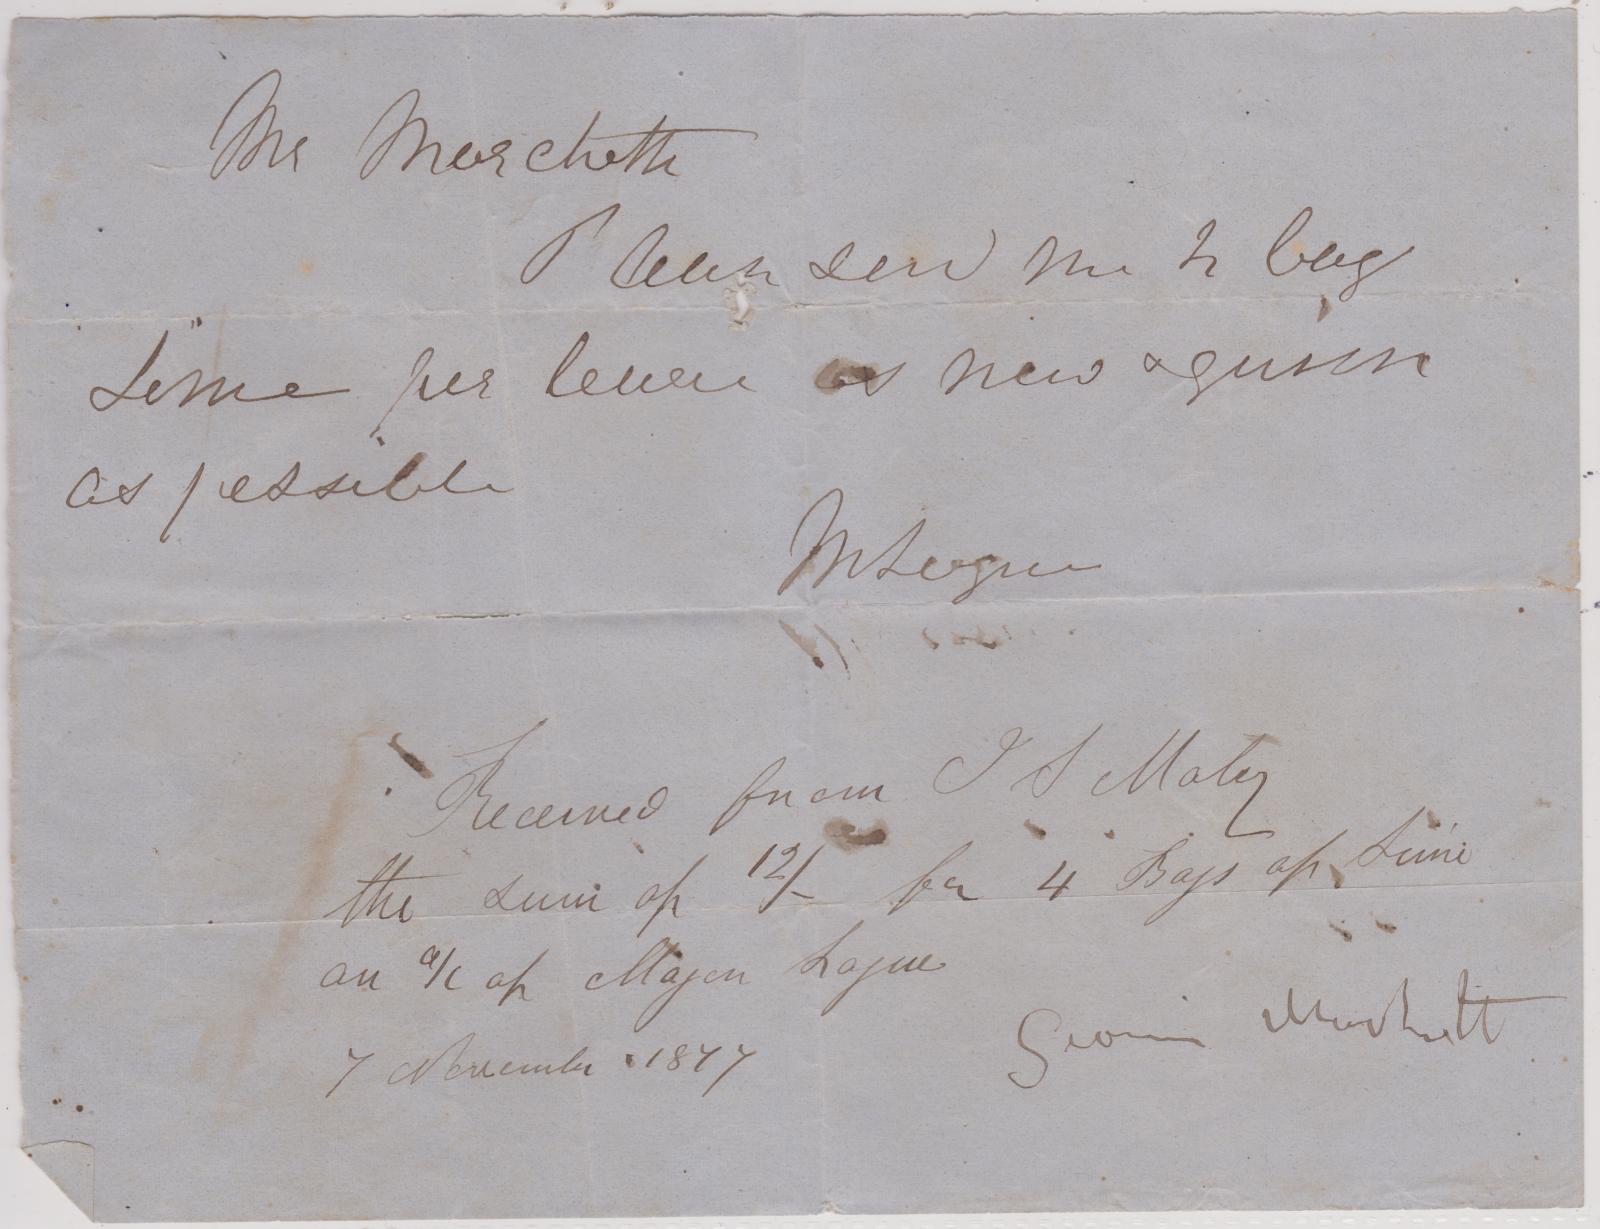 Mr Marchett
Please send me 4 bag
Lime per
as possible
M Logue
Received from J S Maley
the sum of 12/- for 4 Bags of Lime
on a/c of Major Logue
7 November 1877
George Marchett